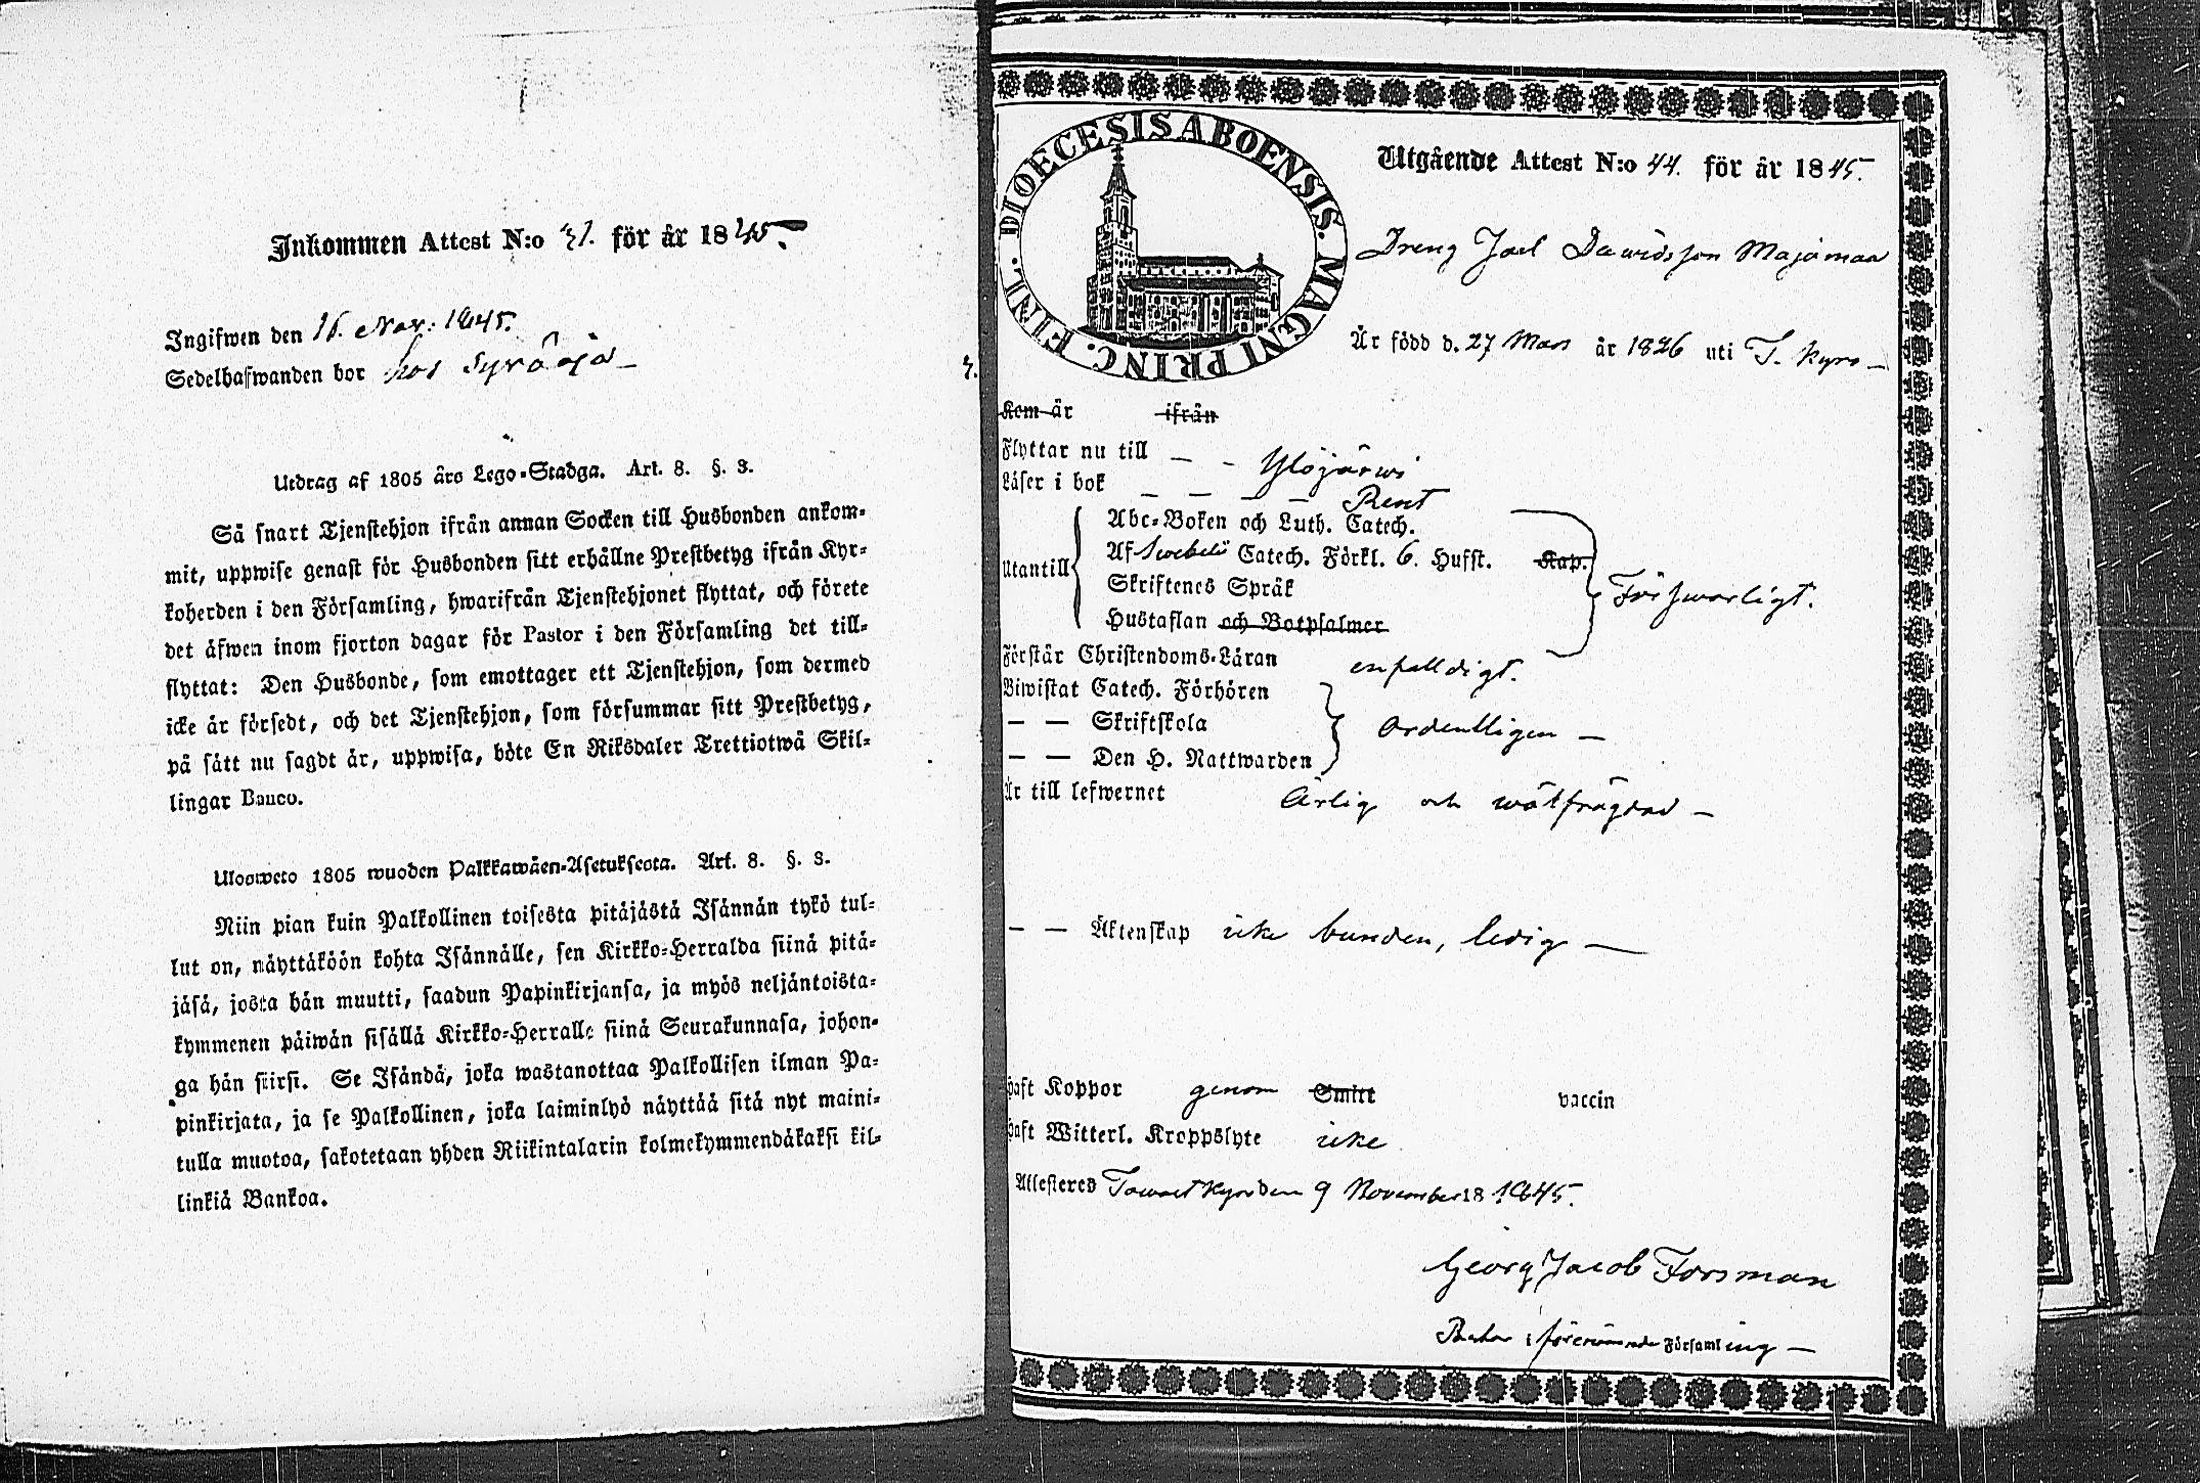 Inkommen Attest N:o 31. för år 1845.
Ingifwen den 16. Nov: 1845.
Sedelhafwanden bor hos Syröija
Utdrag af 1805 års Lego-Stadga. Art. 8. §. 3.
Så snart Tjenstehjon ifrån annan Socken till Husbonden ankom-
mit, uppwise genast för Husbonden sitt erhållne Prestbetyg ifrån Kyr-
koherden i den Församling, hwarifrån Tjenstehjonet flyttat, och förete
det äfwen inom fjorton dagar för Pastor i den Församling det till-
flyttat: Den Husbonde, som emottager ett Tjenstehjon, som dermed
icke är försedt, och det Tjenstehjon, som försummar sitt Prestbetyg,
på sått nu sagdt är, uppwisa, böte En Riksdaler Trettiotwå Skil-
lingar Banco.
Ulosweto 1805 wuoden Palkkawäen-Asetuksesta. Art. 8. §. 3.
Niin pian kuin Palkollinen toisesta pitäjästä Isännän tykö tul-
lut on, näyttäköön kohta Isännälle, sen Kirkko-Herralda siinä pitä-
jäsä, josta hän muutti, saadun Papinkirjansa, ja myös neljäntoista-
kymmenen päiwän sisällä Kirkko-Herralle siinä Seurakunnasa, johon-
ga hän siirsi. Se Isändä, joka wastanottaa Palkollisen ilman Pa-
pinkirjata, ja se Palkollinen, joka laiminlyö näyttää sitä nyt maini-
tulla muotoa, sakotetaan yhden Riikintalarin kolmekymmendäkaksi kil-
linkiä Bankoa.
DIOECESIS ABOENSIS. MAGNI PRINC. FINL.
Utgående Attest N:o 44. för år 1845.
Dreng Joel Dawidsson Majamaa
Är född d. 27 Mars år 1826 uti T. Kyro
Kom år ifrån
Flyttar nu till Ylöjärwi
Läser i bok Rent
Abc-Boken och Luth. Catech.
Utantill Af Swebelii Catech. Förkl. 6. Hufst. Kap.
Skriftenes Språk
Förswarligt.
Hustaflan och Botpsalmer
Förstår Christendoms-Läran enfalldigt.
Biwistat Catech. Förhören
— — Skriftskola ordentligen
— — Den H. Nattwarden
Är till lefwernet Ärlig och wälfrägdad
— — Äktenskap icke bunden, ledig
Haft Koppor genom Smitt vaccin
Haft Witterl. Kroppslyte icke
Attesteres Tawastkyro den 9 November 18 1845.
Georg Jacob Forsman
i förenämnde Församling